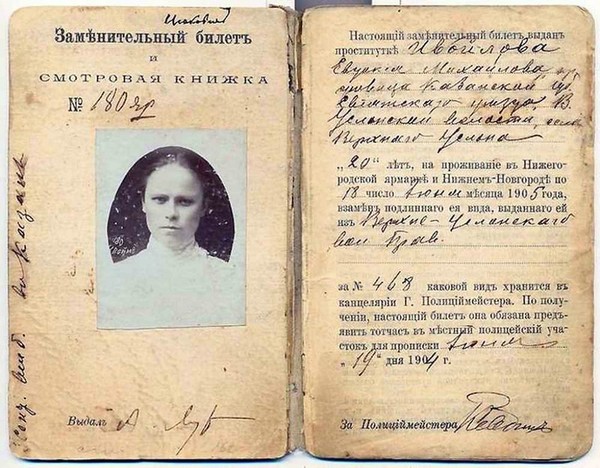 Замѣнительный билетъ
и
СМОТРОВАЯ КНИЖКА
№ 180
Выдалъ
Настоящій замѣнительный билетъ выданъ
проституткѣ
Евдокія Михайлова
Казанской
уѣзда, В.
Услонской волости, села
Верхняго Услона
„20“ лѣтъ, на проживаніе въ Нижего-
родской ярмаркѣ и Нижнемъ-Новгородѣ по
18 число Іюня мѣсяца 1905 года,
взамѣнъ подлиннаго ея вида, выданнаго ей
изъ Верхне-Услонскаго
вол Прав.
за № 468 каковой видъ хранится въ
канцеляріи Г. Полиціймейстера. По полу-
ченіи, настоящій билетъ она обязана предъ-
явить тотчасъ въ мѣстный полицейскій уча-
стокъ для прописки Іюня
„19“ дня 1904 г.
За Полиціймейстера